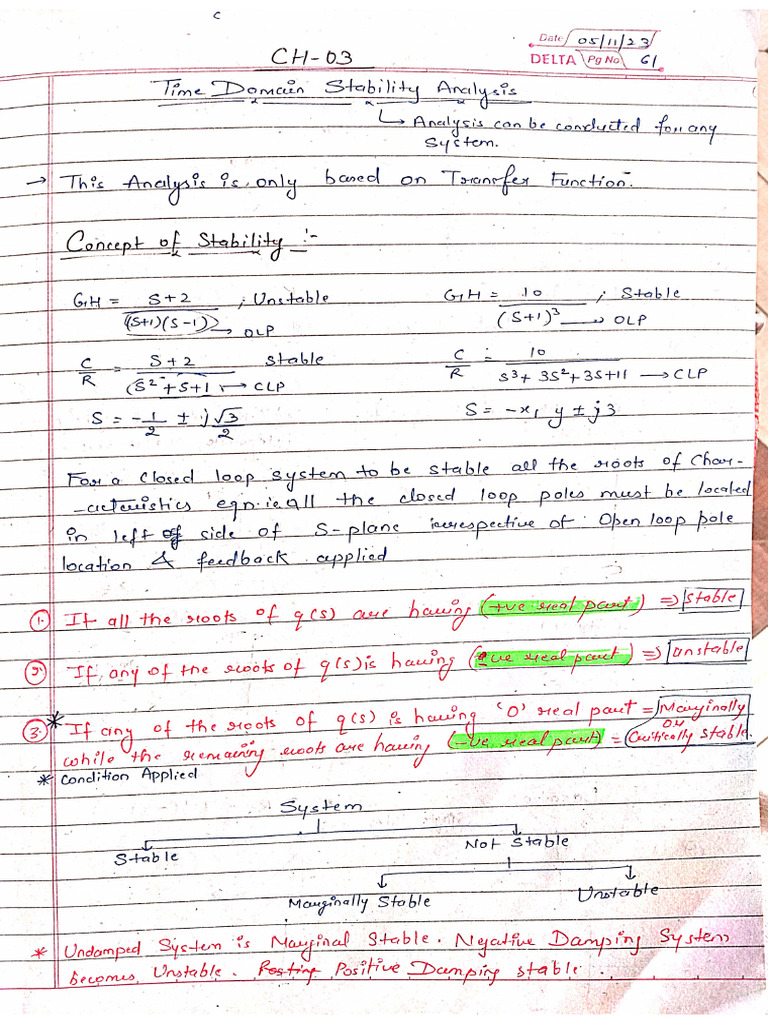 c
Date 05/11/23
DELTA Pg No 61
CH-03
Time Domain Stability Analysis
↳ Analysis can be conducted for any
system.
→ This Analysis is only based on Transfer Function.
Concept of Stability :-
GH = S+2 / (S+1)(S-1) → OLP ; Unstable
GH = 10 / (S+1)³ → OLP ; Stable
C/R = S+2 / (S²+S+1 → CLP Stable
C/R = 10 / S³+3S²+3S+11 → CLP
S = -1/2 ± j√3/2
S = -x, y ± j3
For a closed loop system to be stable all the roots of Char-
-acteristics eqn. ie all the closed loop poles must be located
in left of side of S-plane irrespective of Open loop pole
location & feedback applied
1. If all the roots of q(s) are having (+ve real part) ⇒ Stable
2. If any of the roots of q(s) is having (ve real part) ⇒ Unstable
3. * If any of the roots of q(s) is having 'O' real part = Marginally
or
while the remaining roots are having (-ve real part) = Critically Stable.
* Condition Applied
System
Stable Not Stable
Marginally Stable Unstable
* Undamped System is Marginal Stable. Negative Damping System
becomes Unstable. Positive Damping stable ..